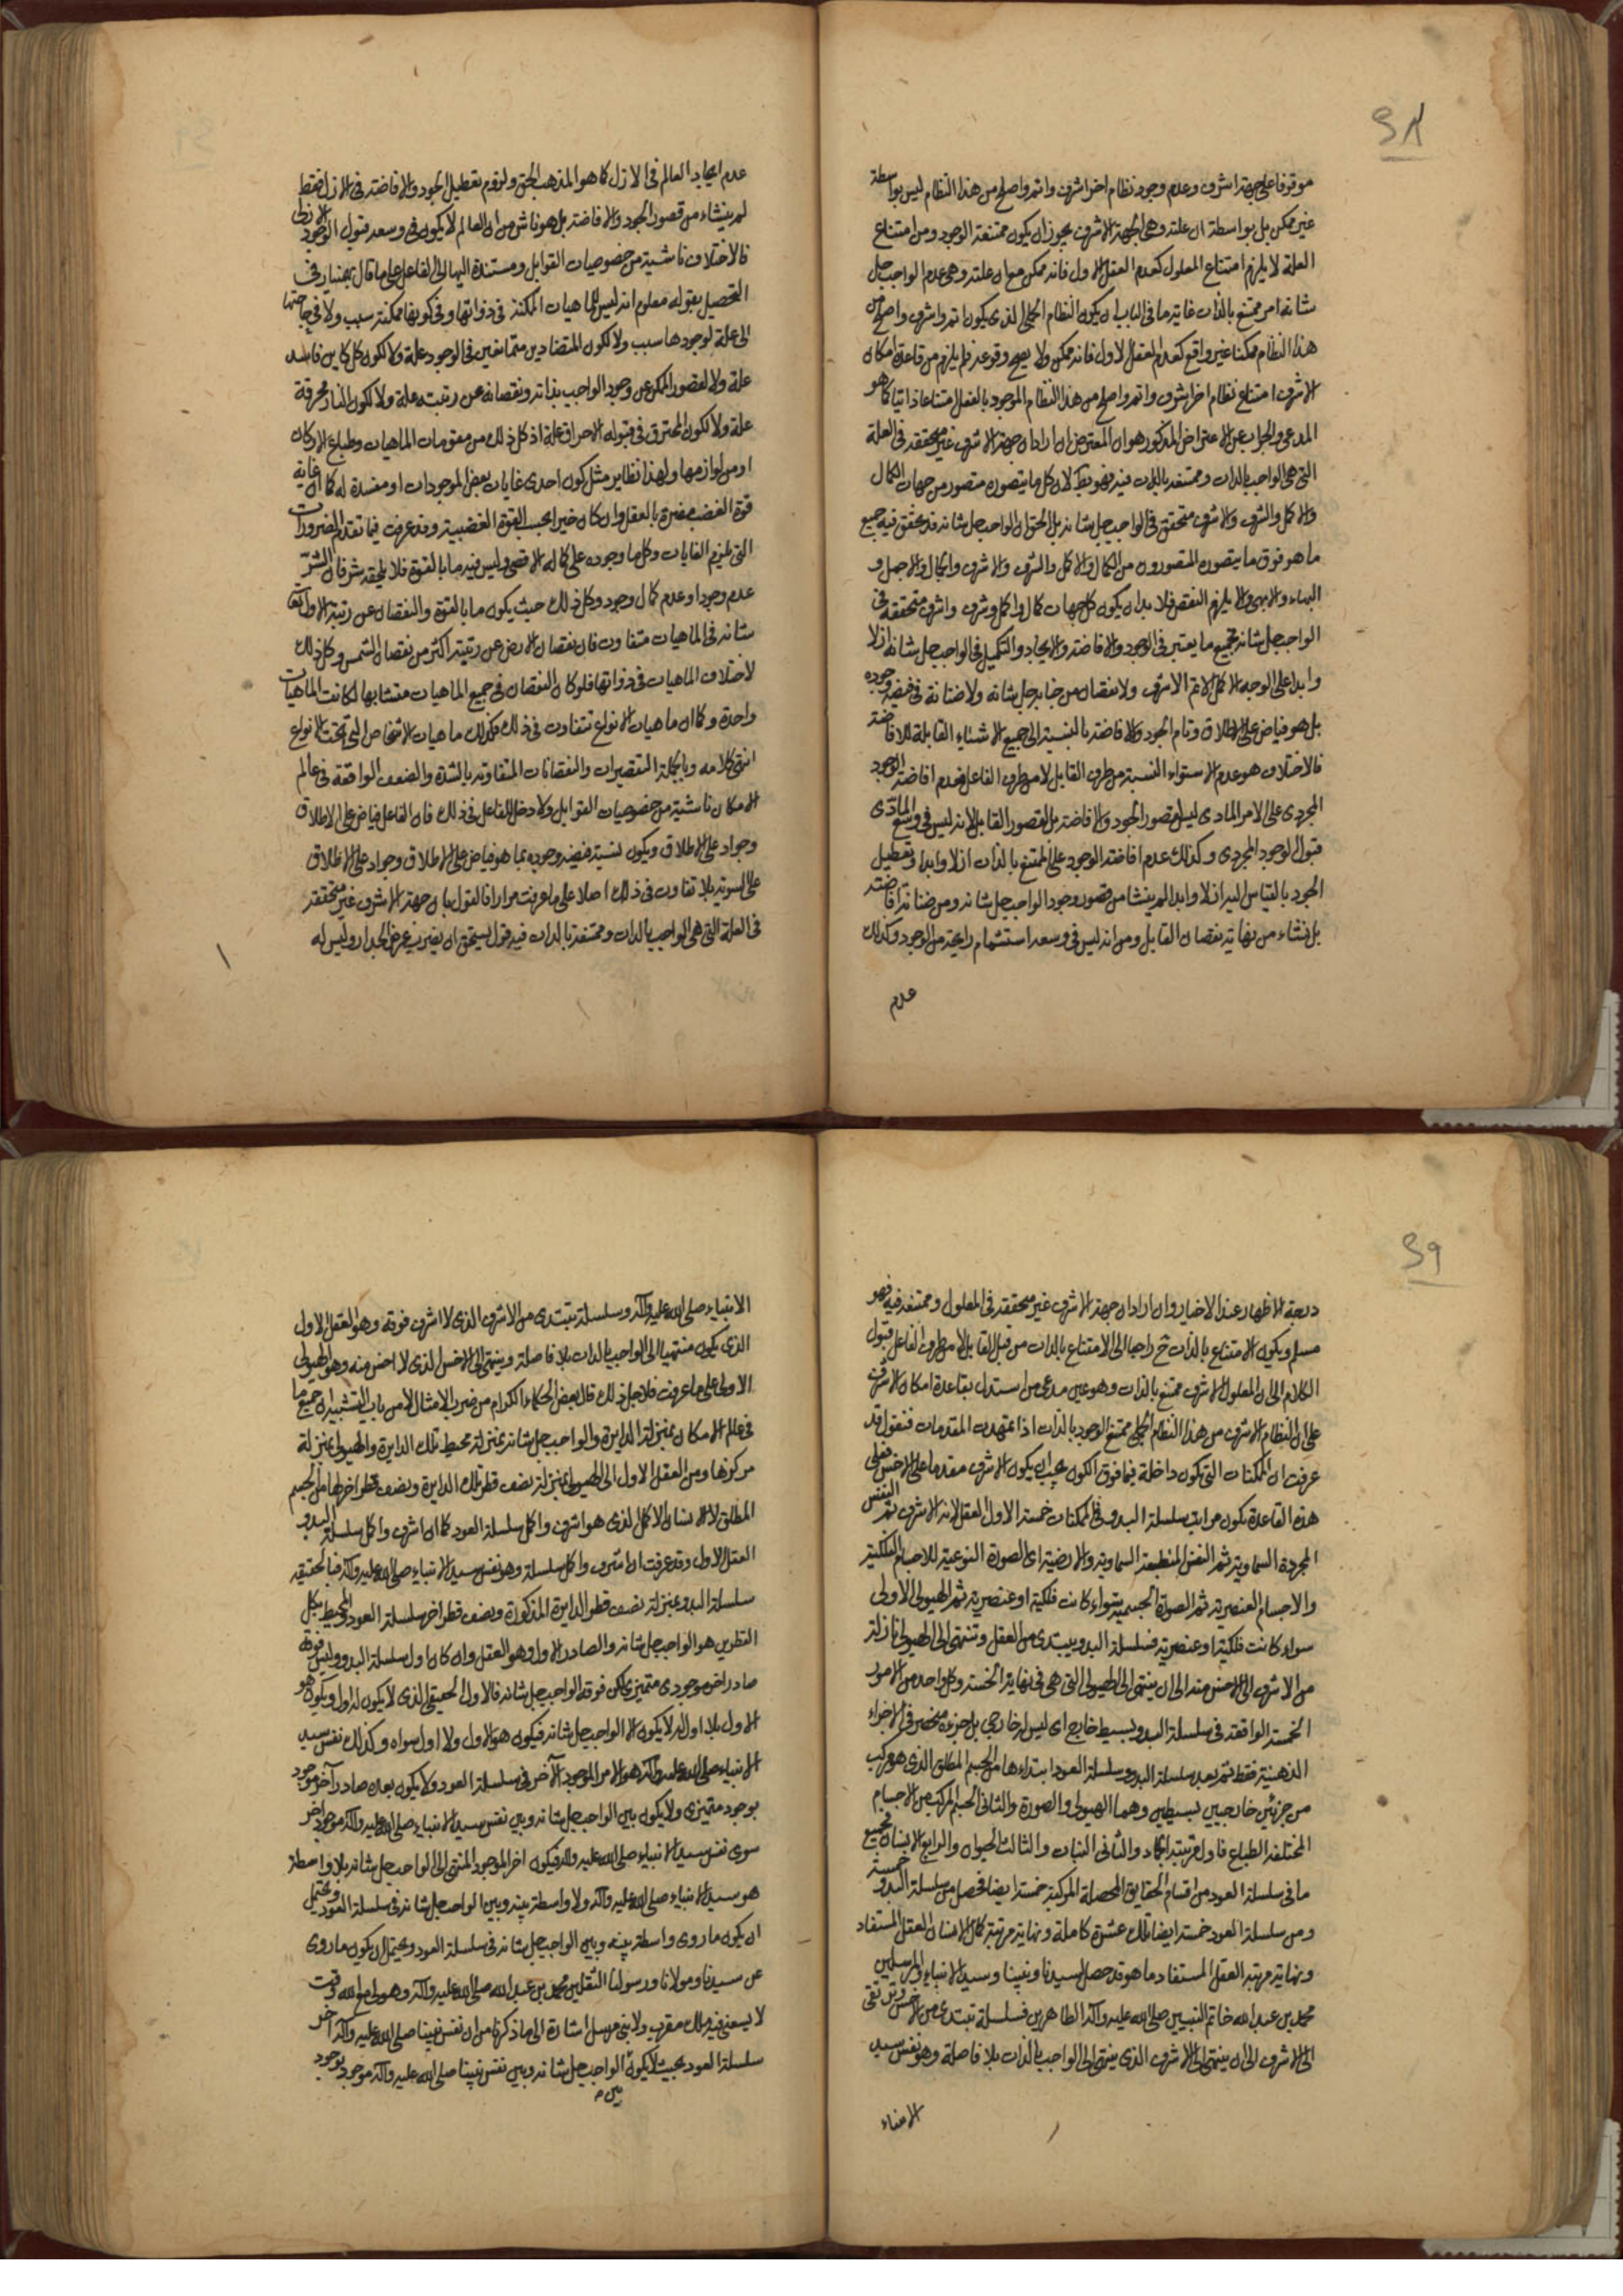 ٤٨
موقوفا على جهة اشرف وعدم وجود نظام اخر اشرف واتم واصلح من هذا النظام ليس بواسطة
غير ممكن بل بواسطة ان علته وهى الجهة الاشرف يجوز ان يكون ممتنعة الوجود ومن امتناع
العلة لا يلزم امتناع المعلول كعدم العقل الاول فانه ممكن مع ان علته وهى عدم الواجب جل
شانه امر ممتنع بالذات غاية ما فى الباب ان يكون النظام الجملى الذى يكون اتم واشرف واصلح من
هذا النظام ممكنا غير واقع كعدم العقل الاول فانه ممكن ولا يصح وقوعه فلم يلزم من قاعدة امكان
الاشرف امتناع نظام اخر اشرف واتم واصلح من هذا النظام الموجود بالفعل امتناعا ذاتيا كما هو
المدعى والجواب عن الاعتراض المذكور هو ان المعترض ان اراد ان جهة الاشرف غير متحققة فى العلة
التى هى الواجب بالذات وممتنعة بالذات فيه فهو بط لان كل ما يتصوره متصور من جهات الكمال
والاكمل والشرف والاشرف متحقق فى الواجب جل شانه بل الحق ان الواجب جل شانه قد تحقق فيه جميع
ما هو فوق ما يتصوره المتصورون من الكمال والاكمل والشرف والاشرف والجمال والاجمل و
البهاء والابهى والا يلزم النقص فلا بد ان يكون كل جهات كمال واكمل وشرف واشرف متحققة فى
الواجب جل شانه بجميع ما يعتبر فى الوجود والافاضة والايجاد والتكميل فى الواجب جل شانه ازلا
وابدا على الوجه الاكمل الاتم الاشرف ولا نقصان من جنابه جل شانه ولا ضنانة فى فيضه وجوده
بل هو فياض على الاطلاق وتام الجود والافاضة بالنسبة الى جميع الاشياء القابلة للافاضة
فالاختلاف هو عدم الاستواء النسبة من طرف القابل لا من طرف الفاعل فعدم افاضة الوجود
المجردى على الامر المادى ليس لقصور الجود والافاضة بل لقصور القابل لانه ليس فى وسع المادى
قبول الوجود المجردى وكذلك عدم افاضة الوجود على الممتنع بالذات ازلا وابدا وتعطيل
الجود بالقياس اليه ازلا وابدا لم ينشا من قصور وجود الواجب جل شانه ومن ضنانة افاضته
بل نشاء من نهاية نقصان القابل ومن انه ليس فى وسعه استشمام رايحة من الوجود وكذلك
عدم
عدم ايجاد العالم فى الازل كما هو المذهب الحق ولزوم تعطيل الجود والافاضة فى الازل فقط
لم ينشاء من قصور الجود والافاضة بل هو ناش من ان العالم لا يكون فى وسعه قبول الوجود الازلى
فالاختلاف ناشية من خصوصيات القوابل ومستندة اليها لا الى الفاعل على ما قال بهمنيار فى
التحصيل بقوله معلوم انه ليس للماهيات الممكنة فى ذواتها وفى كونها ممكنة سبب ولا فى حاجتها
الى علة لوجودها سبب ولا لكون المتضادين متمانعين فى الوجود علة ولا لكون كل كاين فاسد
علة ولا لقصور الممكن عن وجود الواجب بذاته ونقصانه عن رتبته علة ولا لكون النار محرقة
علة ولا لكون المحترق فى قبوله الاحراق علة اذ كل ذلك من مقومات الماهيات وطباع الاركان
او من لوازمها ولهذا نظاير مثل كون احدى غايات بعض الموجودات او مفسدة له كما ان غاية
قوة الغضب مضرة بالعقل وان كان خيرا بحسب القوة الغضبية وقد عرفت فيما تقدم الضرورات
التى تلزم الغايات وكل ما وجوده على كماله الاقصى وليس فيه ما بالقوة فلا يلحقه شر فان الشر
عدم وجود او عدم كمال وجود وكل ذلك حيث يكون ما بالقوة والنقصان عن رتبة الاول تعالى
شانه فى الماهيات متفاوت فان نقصان الارض عن رتبته اكثر من نقصان الشمس وكل ذلك
لاختلاف الماهيات فى ذواتها فلو كان النقصان فى جميع الماهيات متشابها لكانت الماهيات
واحدة وكما ان ماهيات الانواع تتفاوت فى ذلك فكذلك ماهيات الاشخاص التى تحت الانواع
انتهى كلامه وبالجملة التقصيرات والنقصانات المتفاوتة بالشدة والضعف الواقعة فى عالم
الامكان ناشية من خصوصيات القوابل ولا دخل للفاعل فى ذلك فان الفاعل فياض على الاطلاق
وجواد على الاطلاق ويكون نسبة فيضه وجوده بما هو فياض على الاطلاق وجواد على الاطلاق
على السوية بلا تفاوت فى ذلك اصلا على ما عرفت مرارا فالقول بان جهة الاشرف غير متحققة
فى العلة التى هى الواجب بالذات وممتنعة بالذات فيه قول يستحق ان يضرب عرض الجدار وليس له
٤٩
درجة الاظهار عند الاخيار وان اراد ان جهة الاشرف غير متحققة فى المعلول وممتنعة فيه فهو
مسلم ويكون الامتناع بالذات ح راجعا الى الامتناع بالذات من قبل القابل لا من طرف الفاعل فيؤل
الكلام الى ان المعلول الاشرف ممتنع بالذات وهو عين مدعى من استدل بقاعدة امكان الاشرف
على ان النظام الاشرف من هذا النظام الجملى ممتنع الوجود بالذات اذا تمهدت المقدمات فنقول قد
عرفت ان الممكنات التى تكون داخلة فيما فوق الكون يجب ان يكون الاشرف مقدما على الاخس فعلى
هذه القاعدة يكون مراتب سلسلة البدو فى الممكنات خمسة الاول العقل لانه الاشرف ثم النفس
المجردة السماوية ثم النفس المنطبعة السماوية والارضية اى الصورة النوعية للاجسام الفلكية
والاجسام العنصرية ثم الصورة الجسمية سواء كانت فلكية او عنصرية ثم الهيولى الاولى
سواء كانت فلكية او عنصرية فسلسلة البدو يبتدى من العقل وتنتهى الى الهيولى نازلة
من الاشرف الى الاخس منه الى ان ينتهى الى الهيولى التى هى فى نهاية الخسة وكل واحد من الامور
الخمسة الواقعة فى سلسلة البدو بسيط خارج اى ليس له خارجى بل جزءه منحصر فى الاجزاء
الذهنية فقط ثم بعد سلسلة البدو سلسلة العود ابتداءها من الجسم المطلق الذى هو مركب
من جزئين خارجيين بسيطين وهما الهيولى والصورة والثانى الجسم المركب من الاجسام
المختلفة الطباع فاول مرتبته الجماد والثانى النبات والثالث الحيوان والرابع الانسان فجميع
ما فى سلسلة العود من اقسام الحقايق المحصلة المركبة خمسة ايضا فحصل من سلسلة البدو خمسة
ومن سلسلة العود خمسة ايضا تلك عشرة كاملة ونهاية مرتبة كمال الانسان العقل المستفاد
ونهاية مرتبة العقل المستفاد ما هو قد حصل لسيدنا ونبينا وسيد الانبياء والمرسلين
محمد بن عبد الله خاتم النبيين صلى الله عليه واله الطاهرين فسلسلة تبتدى من الاخس وترتقى
الى الاشرف الى ان ينتهى الى الاشرف الذى ينتهى الى الواجب بالذات بلا فاصلة وهو نفس سيد
الانبياء
الانبياء صلى الله عليه واله وسلسلة تبتدى من الاشرف الذى لا اشرف فوقه وهو العقل الاول
الذى يكون منتهيا الى الواجب بالذات بلا فاصلة وينتهى الى الاخس الذى لا اخس منه وهو الهيولى
الاولى على ما عرفت فلاجل ذلك قال بعض الحكماء الكرام من ضرب الامثال لا من باب التشبيه ان جميع ما
فى عالم الامكان بمنزلة الدايرة والواجب جل شانه بمنزلة محيط تلك الدايرة والهيولى بمنزلة
مركزها ومن العقل الاول الى الهيولى بمنزلة نصف قطر تلك الدايرة ونصف قطر اخر لها من الجسم
المطلق الى الانسان الاكمل الذى هو اشرف واكمل سلسلة العود كما ان اشرف واكمل سلسلة البدو
العقل الاول وقد عرفت ان اشرف واكمل سلسلة وهو نفس سيد الانبياء صلى الله عليه واله فبالحقيقة
سلسلة البدو بمنزلة نصف قطر الدايرة المذكورة ونصف قطر اخر سلسلة العود والمحيط بكل
القطرين هو الواجب جل شانه والصادر الاول وهو العقل وان كان اول سلسلة البدو وليس فوقه
صادر اخر موجودى متميزى لكن فوقه الواجب جل شانه فالاول الحقيقى الذى لا يكون له اول ويكون هو
الاول بلا اول له لا يكون الا الواجب جل شانه فيكون هو الاول ولا اول سواه وكذلك نفس سيد
الانبياء صلى الله عليه واله هو الامر الموجود الاخر فى سلسلة العود ولا يكون بعده صادر آخر موجود
بوجود متميزى ولا يكون بين الواجب جل شانه وبين نفس سيد الانبياء صلى الله عليه واله موجود اخر
سوى نفس سيد الانبياء صلى الله عليه واله فيكون اخر الموجود المنتهى الى الواجب جل شانه بلا واسطة
هو سيد الانبياء صلى الله عليه واله ولا واسطة بينه وبين الواجب جل شانه فى سلسلة العود ويحتمل
ان يكون ما روى واسطة بينه وبين الواجب جل شانه فى سلسلة العود ويحتمل ان يكون ما روى
عن سيدنا ومولانا ورسولنا الثقلين محمد بن عبد الله صلى الله عليه واله وهو لى مع الله وقت
لا يسعنى فيه ملك مقرب ولا نبى مرسل اشارة الى ما ذكرنا من ان نفس نبينا صلى الله عليه واله اخر
سلسلة العود بحيث لا يكون الواجب جل شانه وبين نفس نبينا صلى الله عليه واله موجود بوجود
بين